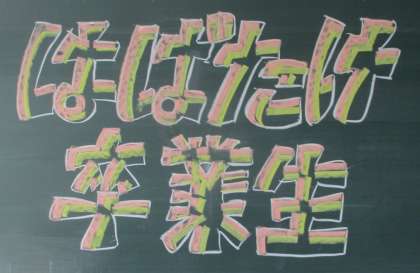 はばたけ
卒業生